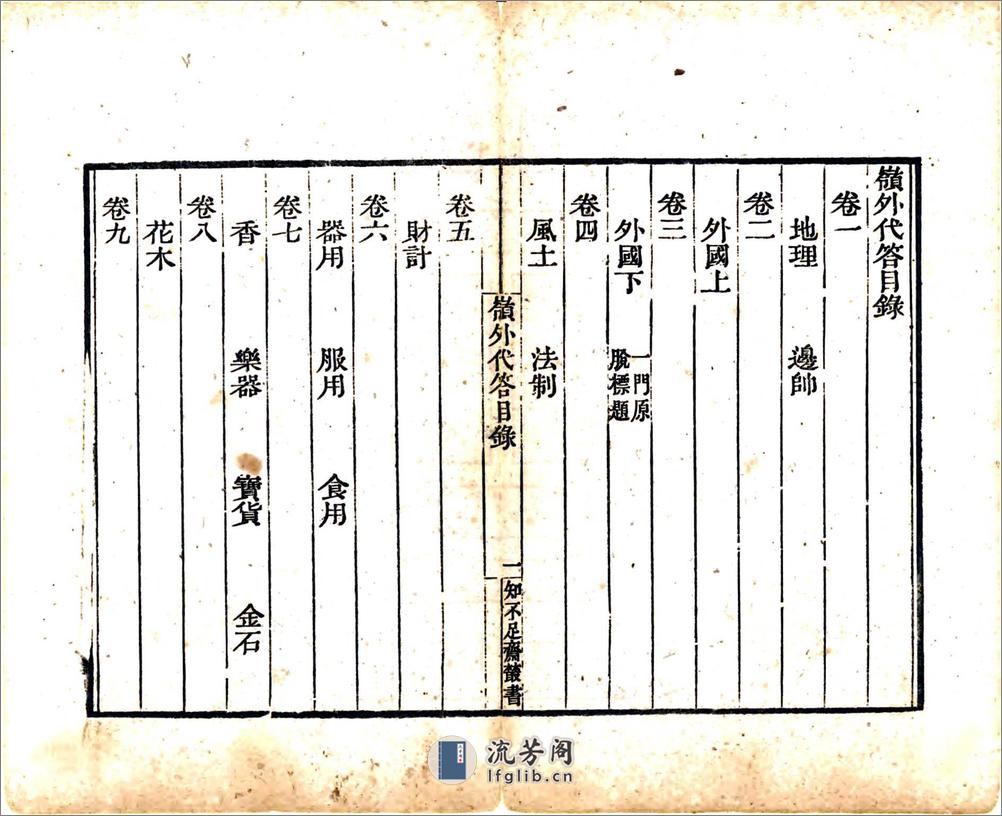 嶺外代答目錄
卷一
地理 邊帥
卷二
外國上
卷三
外國下 一門原脫標題
卷四
風土 法制
嶺外代答目錄 一 知不足齋叢書
卷五
財計
卷六
器用 服用 食用
卷七
香 樂器 寶貨 金石
卷八
花木
卷九
流芳阁
lfglib.cn